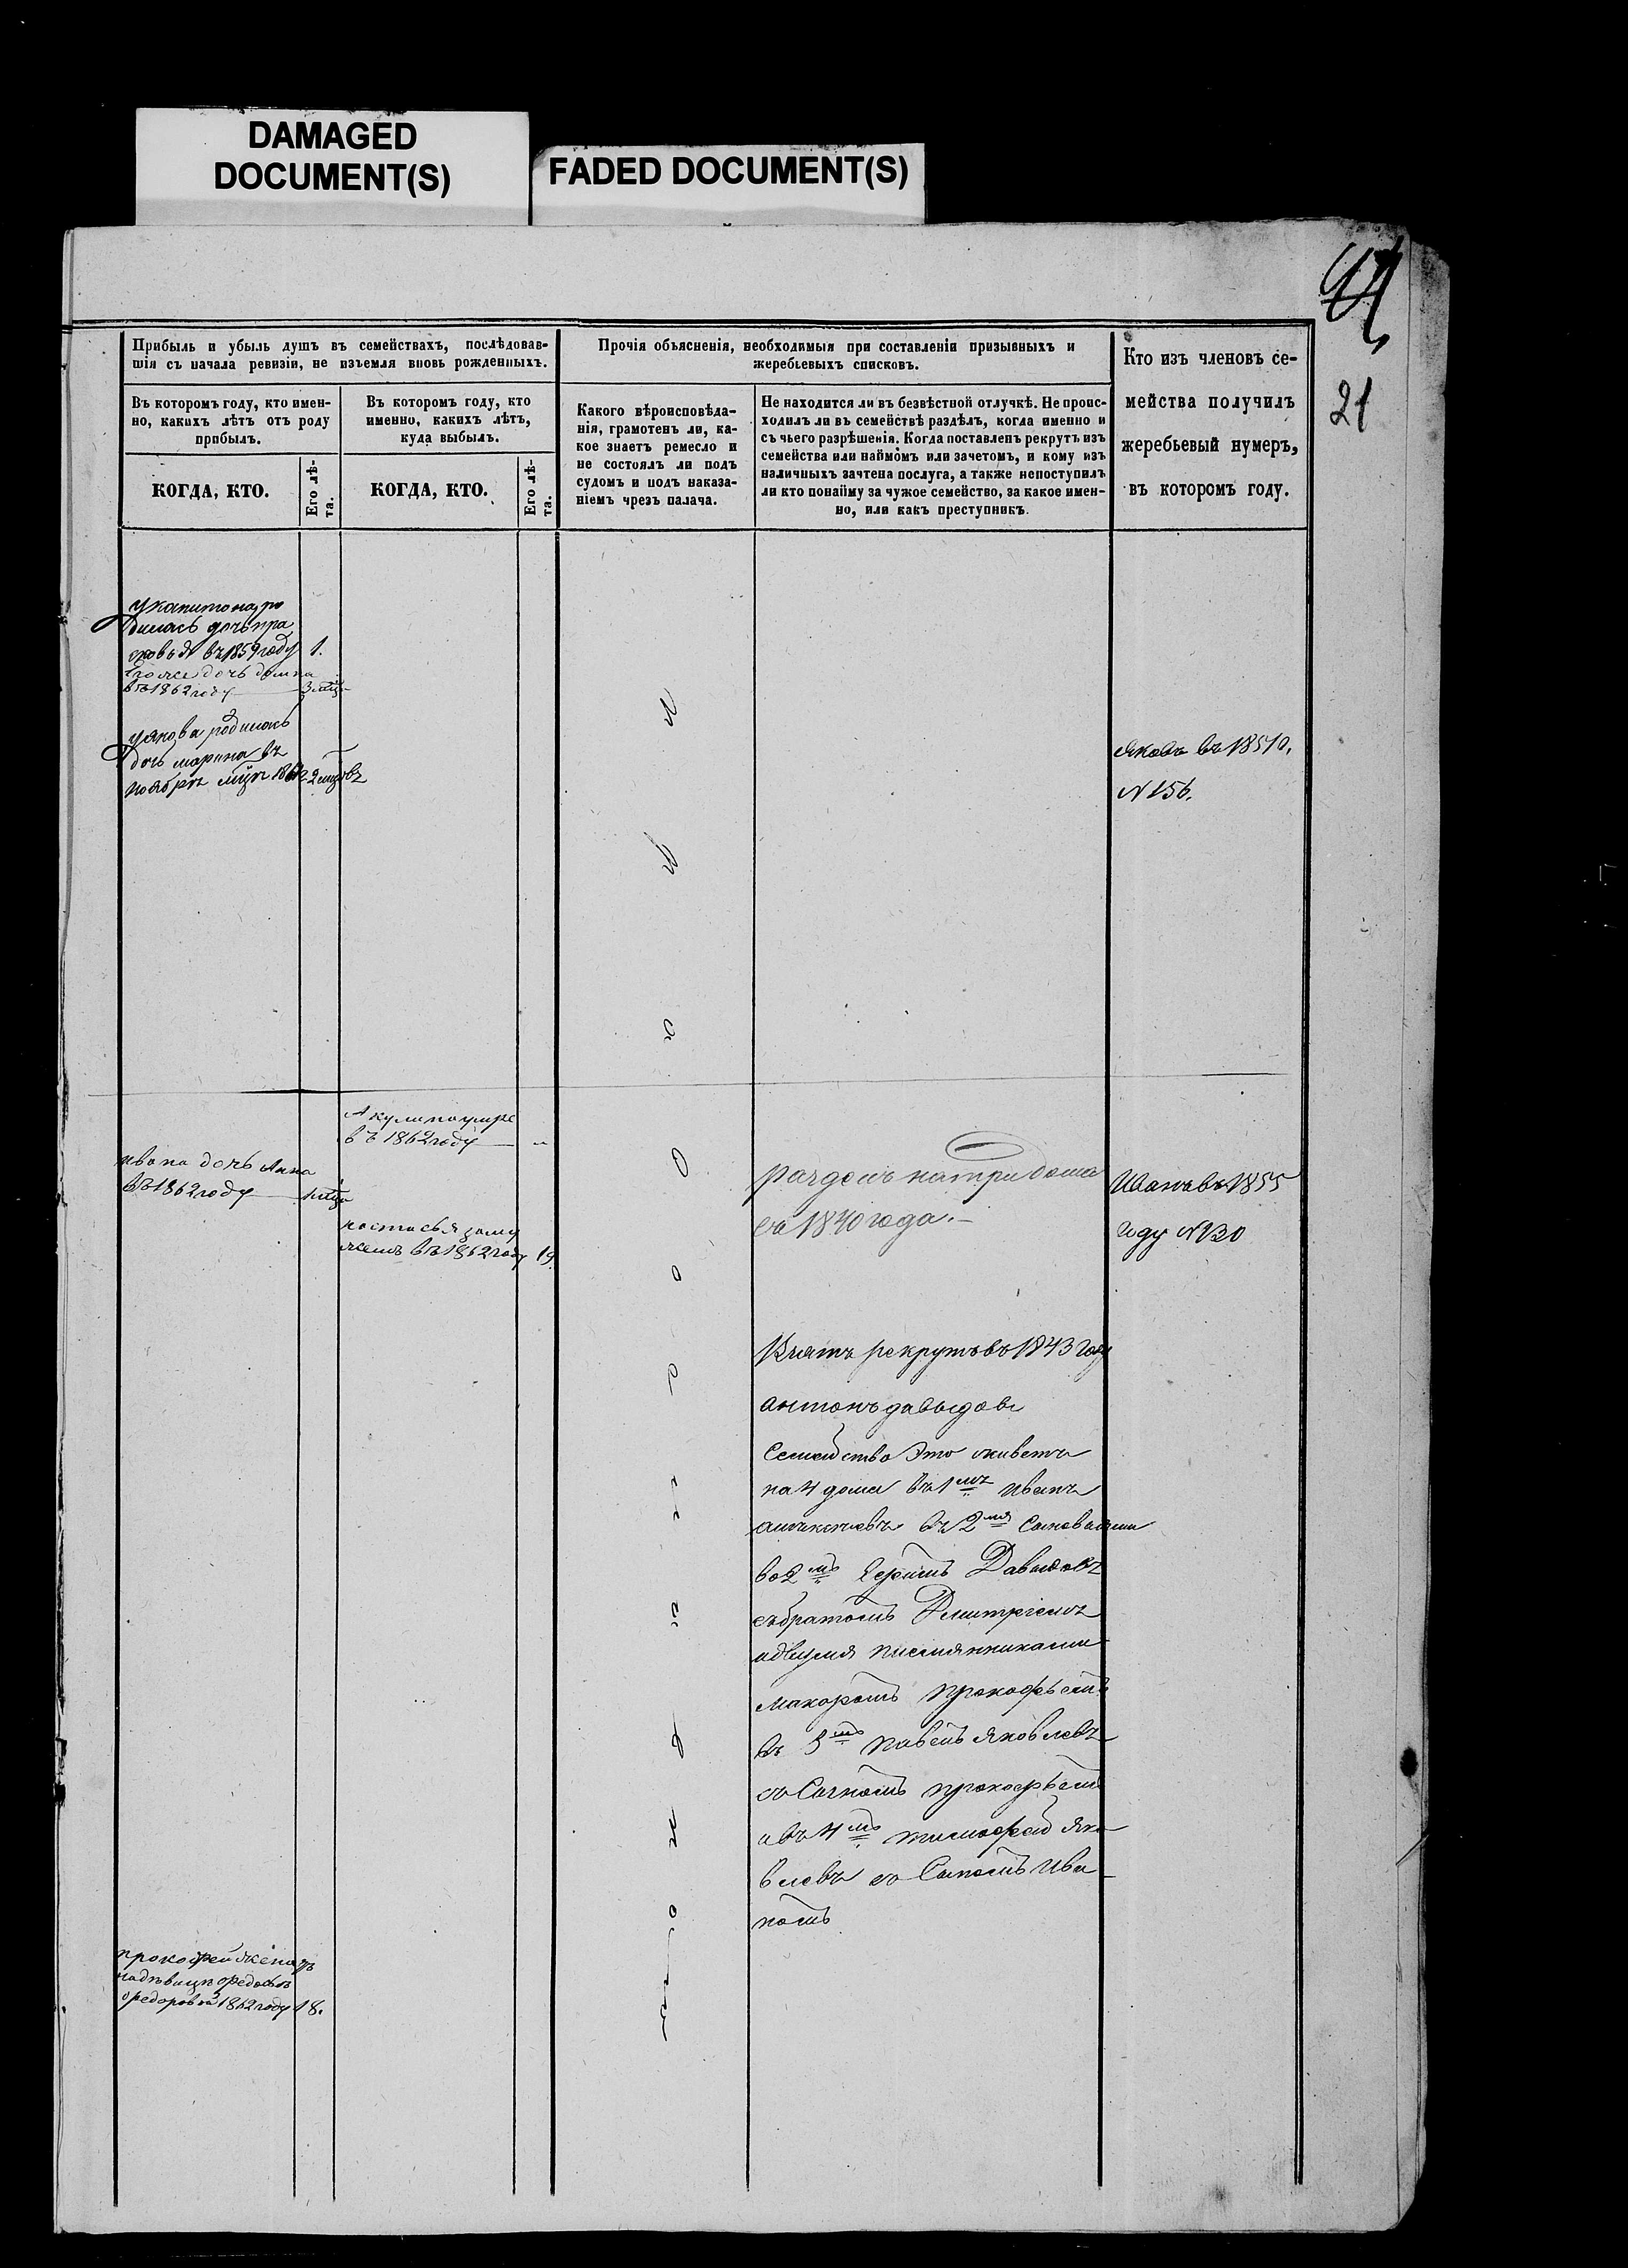 DAMAGED
DOCUMENT(S)
FADED DOCUMENT(S)
21
Прибыль и убыль душъ въ семействахъ, послѣдовав-
шія съ начала ревизіи, не изъемля вновь рожденныхъ.
Прочія объясненія, необходимыя при составленіи призывныхъ и
жеребьевыхъ списковъ.
Кто изъ членовъ се-
мейства получилъ
жеребьевый нумеръ,
въ которомъ году.
Въ которомъ году, кто имен-
но, какихъ лѣтъ отъ роду
прибылъ.
Въ которомъ году, кто
именно, какихъ лѣтъ,
куда выбылъ.
Какого вѣроисповѣда-
нія, грамотенъ ли, ка-
кое знаетъ ремесло и
не состоялъ ли подъ
судомъ и подъ наказа-
ніемъ чрезъ палача.
Не находится ли въ безвѣстной отлучкѣ. Не проис-
ходилъ ли въ семействѣ раздѣлъ, когда именно и
съ чьего разрѣшенія. Когда поставленъ рекрутъ изъ
семейства или наймомъ или зачетомъ, и кому изъ
наличныхъ зачтена послуга, а также непоступилъ
ли кто понайму за чужое семейство, за какое имен-
но, или какъ преступникъ.
КОГДА, КТО.
Его лѣ-
та.
КОГДА, КТО.
Его лѣ-
та.
укапитона ро
дилась дочь пра
сковья въ 1859 году 1.
дочь домна
въ 1862 году
уякова родилась
дочь марина въ
ноябрѣ мцѣ 1862 2 мцовъ
яковъ въ 1851 г.
N 156.
Акулина умре
въ 1862 году
ивана дочь Анна
въ 1862 году
настасья заму
жемъ въ 1862 году 19.
раздѣлъ на три дома
съ 1840 года.
Иванъ въ 1855
году N 130
Взятъ рекрутъ въ 1843 году
антонъ давыдовъ
Семейство Это живетъ
на 4 дома въ 1мъ иванъ
въ 2мя Сыновьями
во 2мъ Ефимъ Давыдовъ
събратомъ Дмитріемъ
идвумя племянниками
макаромъ прокофьемъ
въ 3мъ павелъ яковлевъ
со Сыномъ прокофьемъ
авъ 4мъ тимофей яко
влевъ со Сыномъ Ива
номъ
прокофей женатъ
надѣвицѣ федосьѣ
федоровой 1862 году 18.